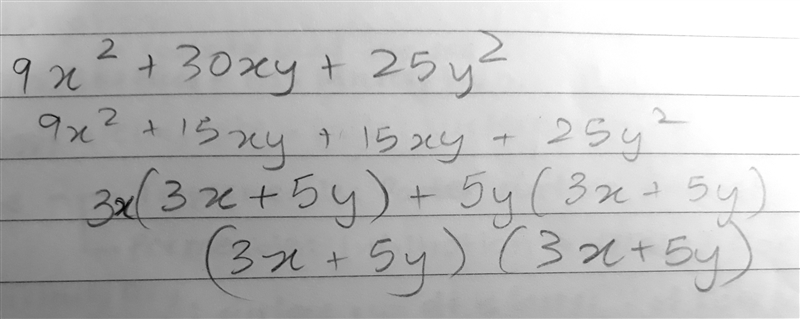 9x² + 30xy + 25y²
9x² + 15xy + 15xy + 25y²
3x(3x + 5y) + 5y(3x + 5y)
(3x + 5y) (3x + 5y)